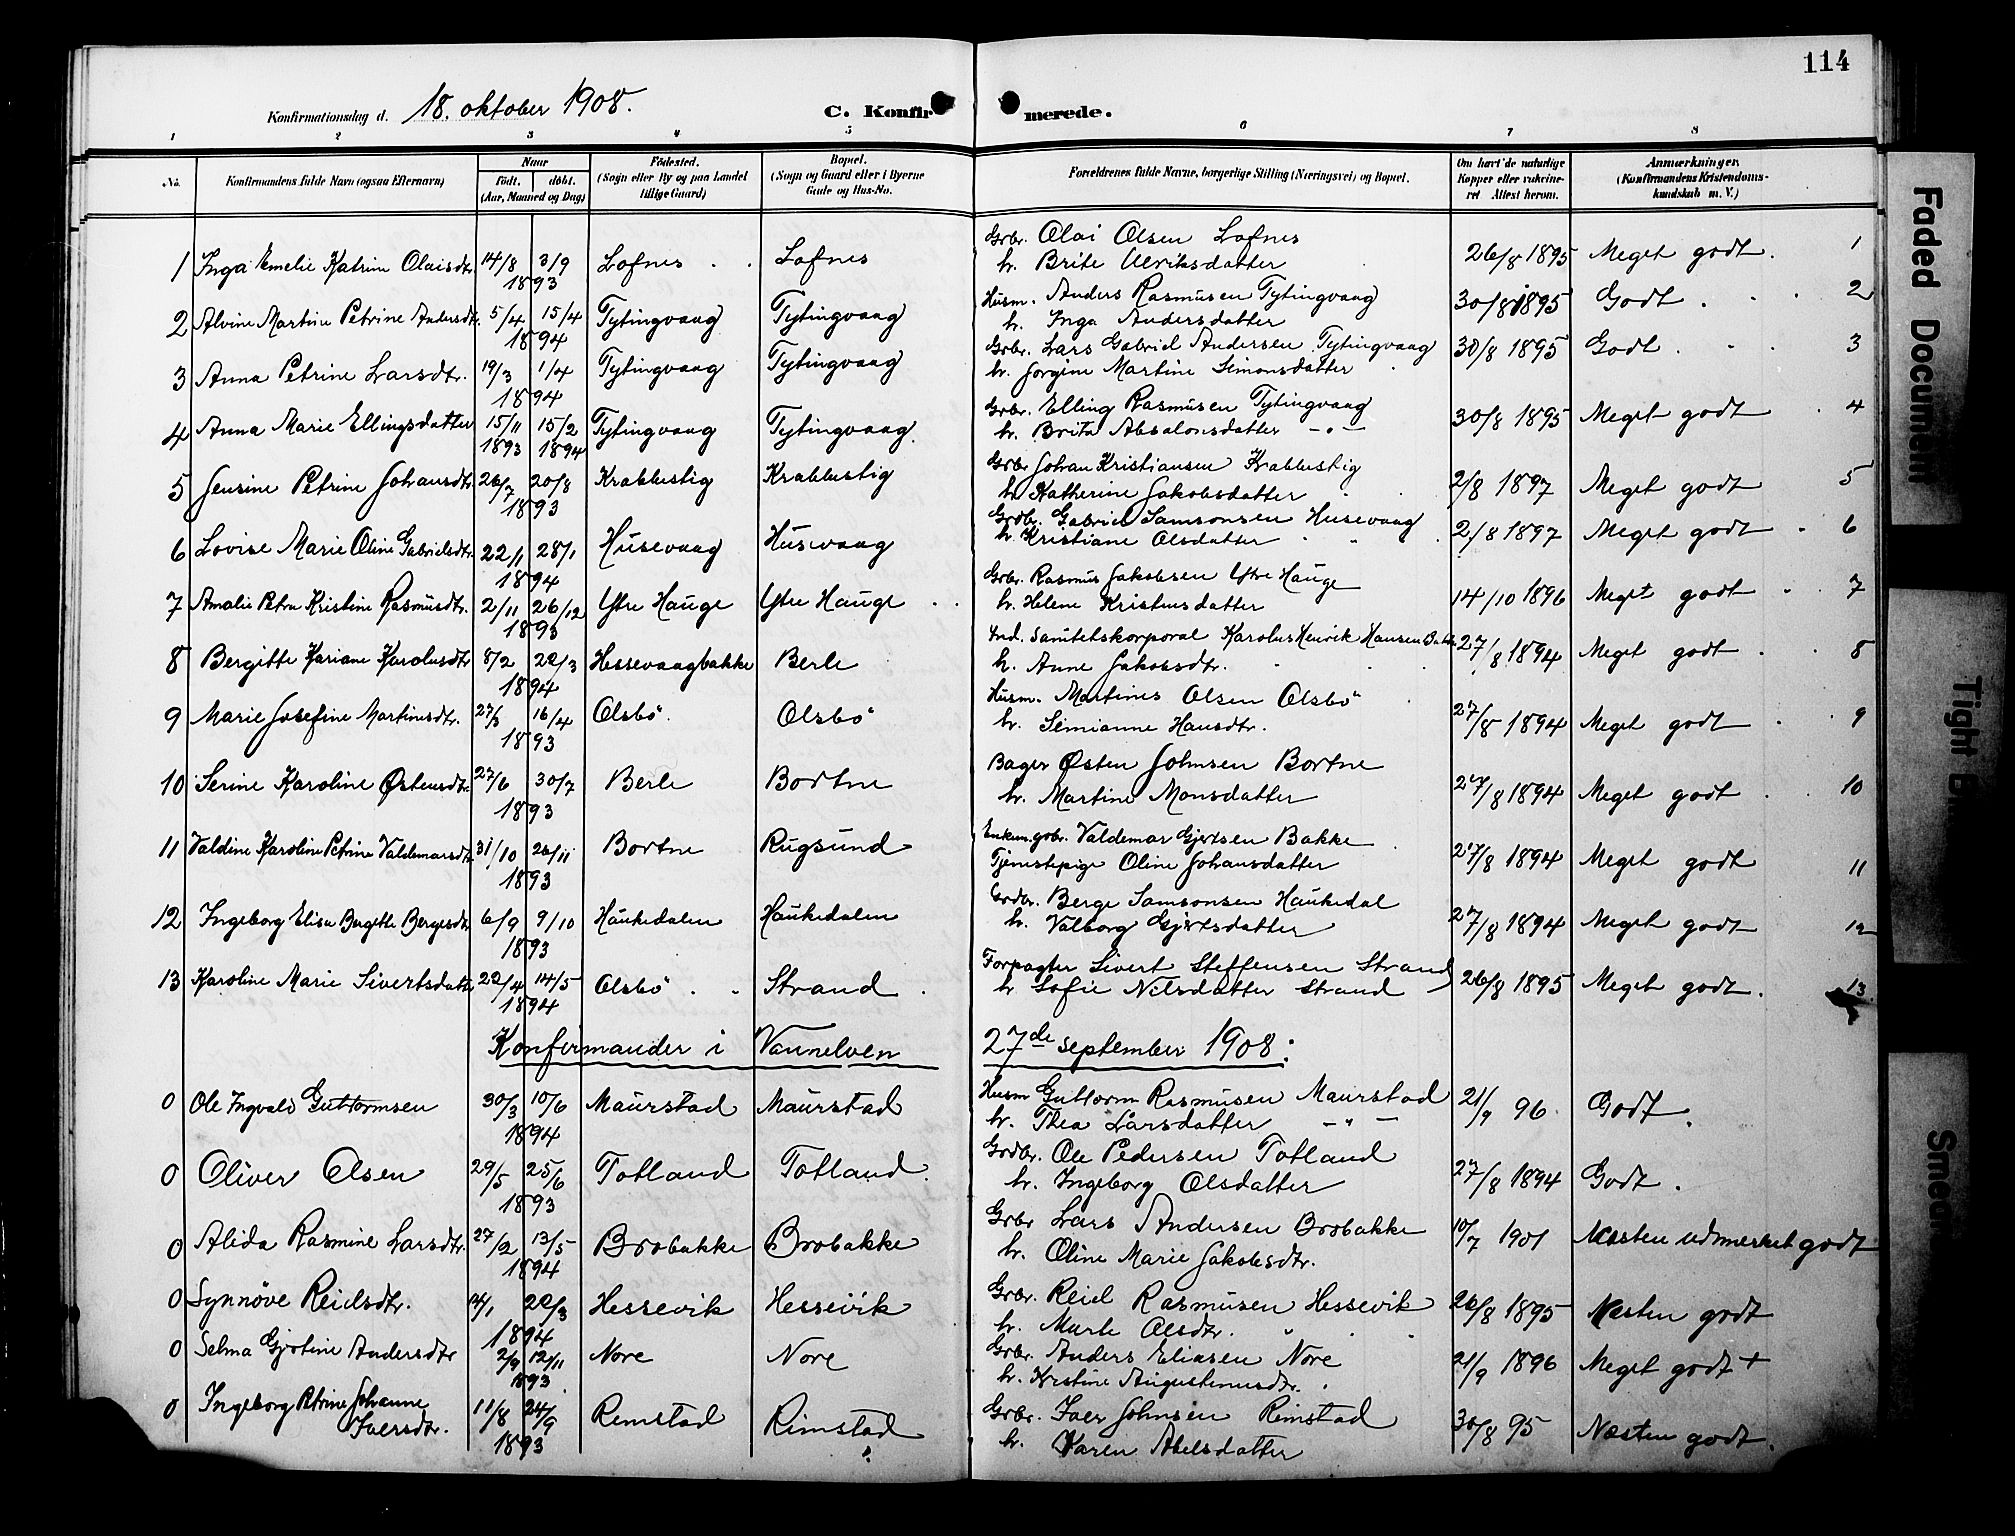 114
Konfirmationsdag d. 18. oktober 1908.
C. Konfirmerede.
1 2 3 4 5 6 7 8
No. Konfirmandens fulde Navn (ogsaa Efternavn) Naar født. døbt. (Aar, Maaned og Dag) Fødested. (Sogn eller By og paa Landet tillige Gaard) Bopæl. (Sogn og Gaard eller i Byerne Gade og Hus-No. Forældrenes fulde Navne, borgerlige Stilling (Næringsvei) og Bopæl. Om havt de naturlige Kopper eller vakcineret Attest herom. Anmærkninger. (Konfirmandens Kristendomskundskab m. V.)
1 Inga Emelie Katrine Olaisdtr. 14/8 3/9 1893 Lofnes Lofnes Grbr. Olai Olsen Lofnes 26/8 1895 Meget godt. 1
h. Brite Ulriksdatter
2 Alvine Martine Petrine Andersdtr. 5/4 15/4 1894 Tytingvaag Tytingvaag Husm. Anders Rasmusen Tytingvaag 30/8 1895 Godt. 2
h. Inga Andersdatter
3 Anna Petrine Larsdtr. 19/3 1/4 1894 Tytingvaag Tytingvaag Grbr. Lars Gabriel Andersen Tytingvaag 30/8 1895 Godt. 3
h. Jorgine Martine Simonsdatter
4 Anna Marie Ellingsdatter 15/11 1893 15/2 1894 Tytingvaag Tytingvaag. Grbr. Elling Rasmusen Tytingvaag 30/8 1895 Meget godt 4
h. Brita Absalonsdatter -"-
5 Jensine Petrine Johansdtr. 26/7 20/8 1893 Krabbestig Krabbestig Grbr Johan Kristiansen Krabbestig 2/8 1897 Meget godt 5
h. Katherine Jakobsdatter
6 Lovise Marie Oline Gabrielsdtr. 22/1 28/1 1894 Husevaag Husevaag Grdbr. Gabriel Samsonsen Husevaag 2/8 1897 Meget godt 6
h. Kristiane Olsdatter " "
7 Amalie Petra Kristine Rasmusdtr. 2/11 26/12 1893 Ytre Hauge Ytre Hauge Grbr. Rasmus Jakobsen Ytre Hauge 14/10 1896 Meget godt 7
h. Helene Kristensdatter
8 Bergitte Kariane Karolusdtr 8/2 22/3 1894 Hessevaagbakke Berle Ind. Sanitetskorporal Karolus Henrik Hansen 27/8 1894 Meget godt 8
h. Anne Jakobsdtr.
9 Marie Josefine Martinusdtr. 27/3 16/4 1893 Olsbö. Olsbö Husm. Martines Olsen Olsbö 27/8 1894 Meget godt 9
h. Simianne Hansdtr.
10 Serine Karoline Østensdtr. 27/6 30/7 1893 Berle Bortne Bager Østen Johnsen Bortne 27/8 1894 Meget godt 10
h. Martine Monsdatter
11 Valdine Karoline Petrine Valdemarsdtr. 31/10 26/11 1893 Bortne Rugsund Enkem. grbr. Valdemar Gjertsen Bakke 27/8 1894 Meget godt 11
Tjenstepige Oline Johansdatter
12 Ingeborg Elisa Bergitte Bergesdtr 6/9 9/10 1893 Haukedalen Haukedalen Grdbr. Berge Samsonsen Haukedal 27/8 1894 Meget godt 12
h. Valborg Gjertsdatter
13 Karoline Marie Sivertsdatter 22/4 14/5 1894 Olsbö Strand Forpagter Sivert Steffensen Strand 26/8 1895 Meget godt. 13
h. Sofie Nilsdatter Strand
Konfirmander i Vannelven 27de september 1908:
0 Ole Ingvald Guttormsen 30/3 10/6 1894 Maurstad Maurstad Husm Guttorm Rasmusen Maurstad 21/9 96. Godt.
h. Thea Larsdatter -"-
0 Oliver Olsen 29/5 25/6 1893 Totland Totland. Grdbr. Ole Pedersen Totland 27/8 1894 Godt.
h. Ingeborg Olsdatter
0 Alida Rasmine Larsdtr. 27/2 13/5 1894 Brobakke Brobakke Grbr Lars Andersen Brobakke 10/7 1901 Næsten udmerket godt
h. Oline Marie Jakobsdtr.
0 Synnöve Reidsdtr. 14/1 22/3 1894 Hessevik Hessevik Grbr. Reid Rasmusen Hessevik 26/8 1895 Næsten godt
h. Marte Olsdtr. "
0 Selma Gjotine Andersdtr 2/9 12/11 1893 Nore Nore Grbr. Anders Eliasen Nore 21/9 1896 Meget godt +
h. Kristine Augustinusdtr.
0 Ingeborg Petrine Johanne Iversdtr. 11/8 24/9 1893 Remstad Rimstad Grbr. Iver Johnsen Rimstad 30/8 95 Næsten godt.
h. Karen Abelsdatter
Faded Document
Tight
Smear